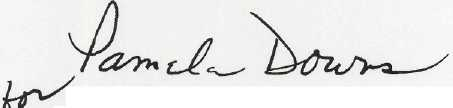 for Pamela Downs